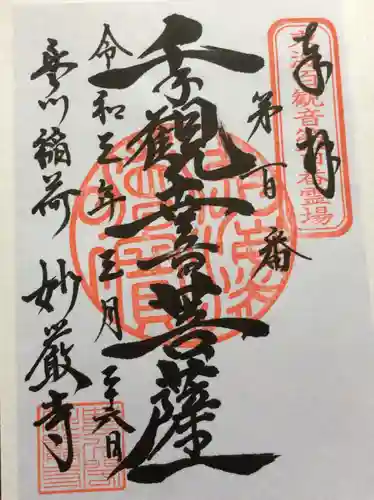 奉拝
東海百観音第百番霊場
第百番
千手観世音菩薩
令和三年三月二十六日
豊川稲荷 妙嚴寺